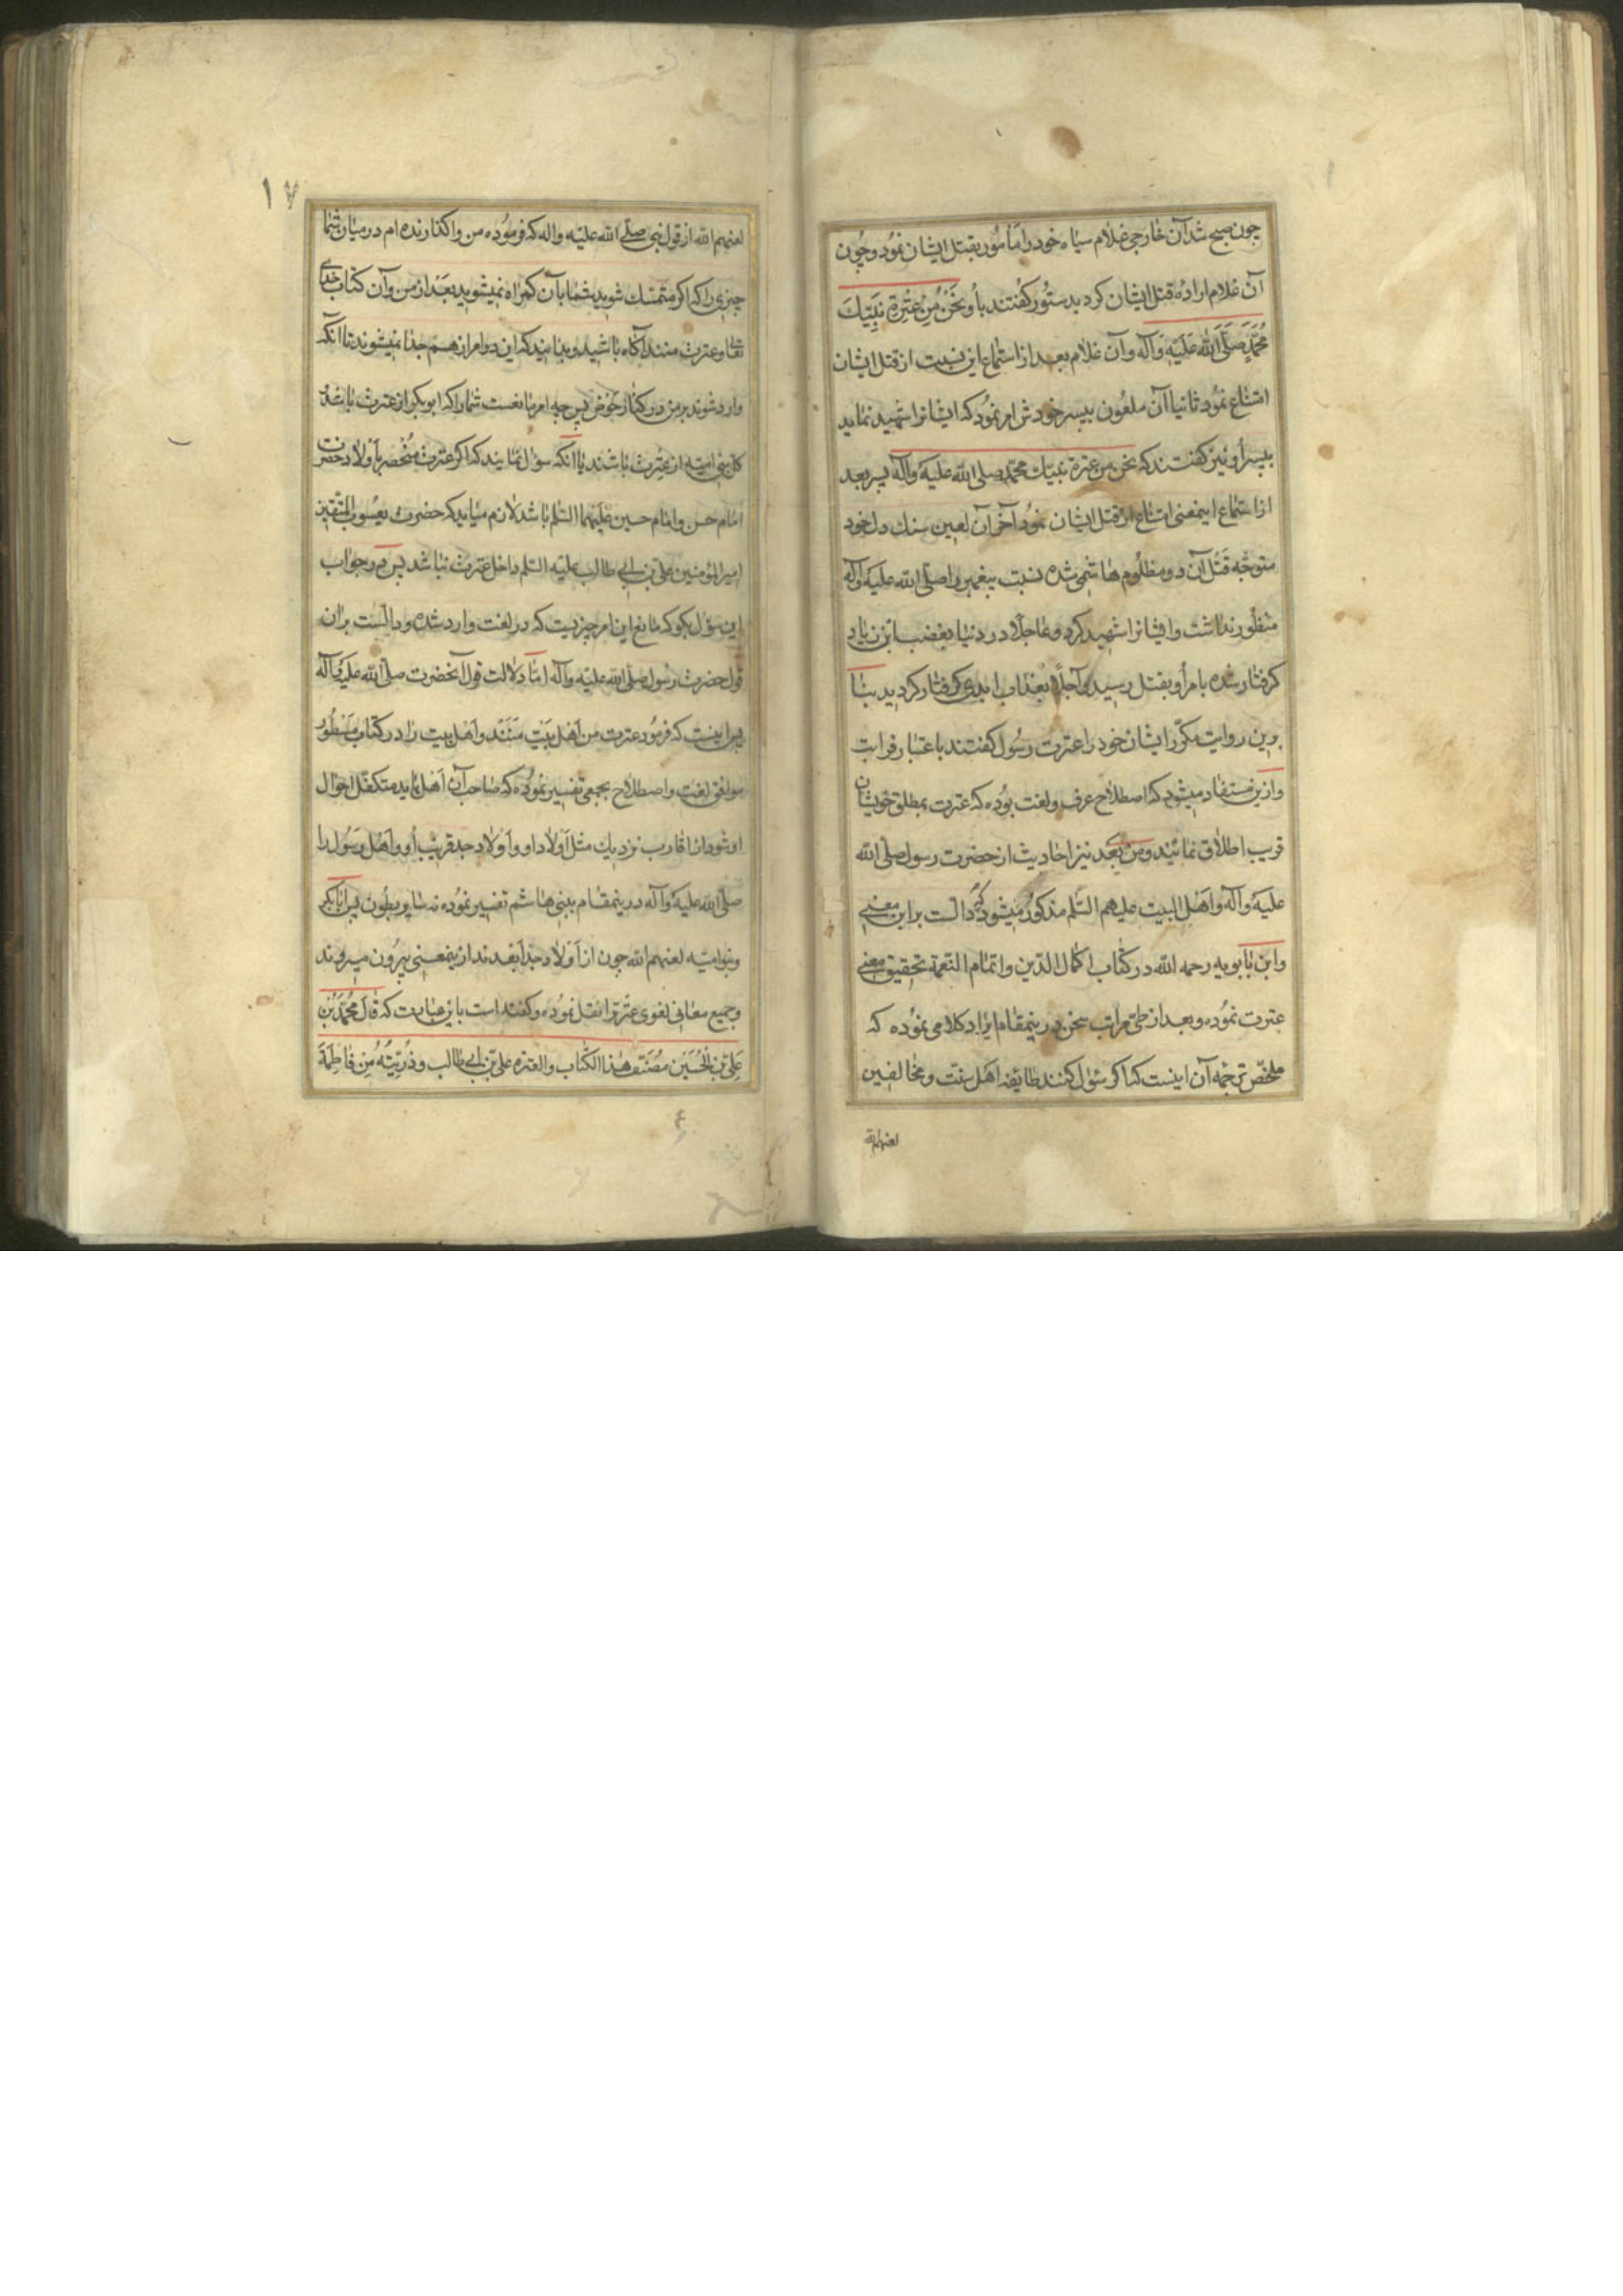 چون صبح شد آن خارجی غلام سیاه خود را مامور بقتل ایشان نمود و چون
آن غلام اراده قتل ایشان کرد بدستور کفتند باو نَحْنُ مِنْ عِتْرَةِ نَبِيِّكَ
مُحَمَّدٍ صَلَّى اللهُ عَلَيْهِ وَآلِه وآن غلام بعد از استماع این نسبت از قتل ایشان
امتناع نمود ثانیا آن ملعون بپسر خودش امر نمود که ایشانرا شهید نماید
بپسر او نیز کفتند که نحن من عترة نبیك محمد صلی الله علیه وآله پسر بعد
از استماع اینمعنی امتناع از قتل ایشان نمود آخر آن لعین سنك دل خود
متوجه قتل آن دو مظلوم هاشمی شده نسبت پیغمبر را صلی الله علیه وآله
منظور نداشت و ایشانرا شهید کرد و عاجلا در دنیا بغضب ابن زیاد
کرفتار شده بامر او بقتل رسید وآجلا بعذاب ابدی کرفتار کردید بنا
برین روایت مکرر ایشان خود را عترت رسول کفتند باعتبار قرابت
وازین مستفاد میشود که اصطلاح عرف ولغت بوده که عترت بمطلق خویشان
قریب اطلاق نمائیند ومن بعد نیز احادیث از حضرت رسول صلی الله
علیه وآله واهل البیت علیهم السلم مذکور میشود که دالست براین معنی
وابن بابویه رحمه الله در کتاب اکمال الدین واتمام النعمة تحقیق معنی
عترت نموده و بعد از طی مراتب سخن درینمقام ایراد کلامی نموده که
ملخص ترجمه آن اینست که اکر سئوال کنند طایفه اهل سنت ومخالفین
لعنهم الله
١٧
لعنهم الله از قول نبی صلی الله علیه واله که فرموده من واکذارنده ام در میان شما
چیزی را که اکر متمسك شوید شما بآن کمراه نمیشوید بعد از من وآن کتاب خدای
تعالی و عترت منند آکاه باشید وبدانید که این دو امر از هم جدا نمیشوند تا آنکه
وارد شوند بر من در کنار حوض پس چه امر مانعست شما را که ابوبکر از عترت باشد
کل بنی امیه از عترت باشند یا آنکه سؤل نمایند که اکر عترت منحصر باولاد حضرت
امام حسن و امام حسین علیهما السلم باشد لازم میاید که حضرت یعسوب المتقین
امیرالمؤمنین علی بن ابی طالب علیه السلم داخل عترت نباشد پس در جواب
این سؤل بکو که مانع این امر چیزیست که در لغت وارد شده ودالست بران
قول حضرت رسول صلی الله علیه وآله اما دلالت قول آنحضرت صلی الله علیه وآله
پس اینست که فرمود عترت من اهل بیت منند واهل بیت را در کتاب مسطور
موافق لغت واصطلاح بجمعی تفسیر نموده که صاحب آن اهل باید متکفل احوال
او شود از اقارب نزدیك مثل اولاد او و اولاد جد قریب او و اهل رسول را
صلی الله علیه وآله درینمقام ببنی هاشم تفسیر نموده نه سایر بطون پس ابابکر
وبنوامیه لعنهم الله چون از اولاد جد ابعدند ازینمعنی بیرون میروند
وجمیع معانی لغوی عترترا نقل نموده وکفته است باین عبارت که قال محمد بن
علي بن الحسين مصنف هذا الكتاب والعتره علي بن ابي طالب وذريته من فاطمة